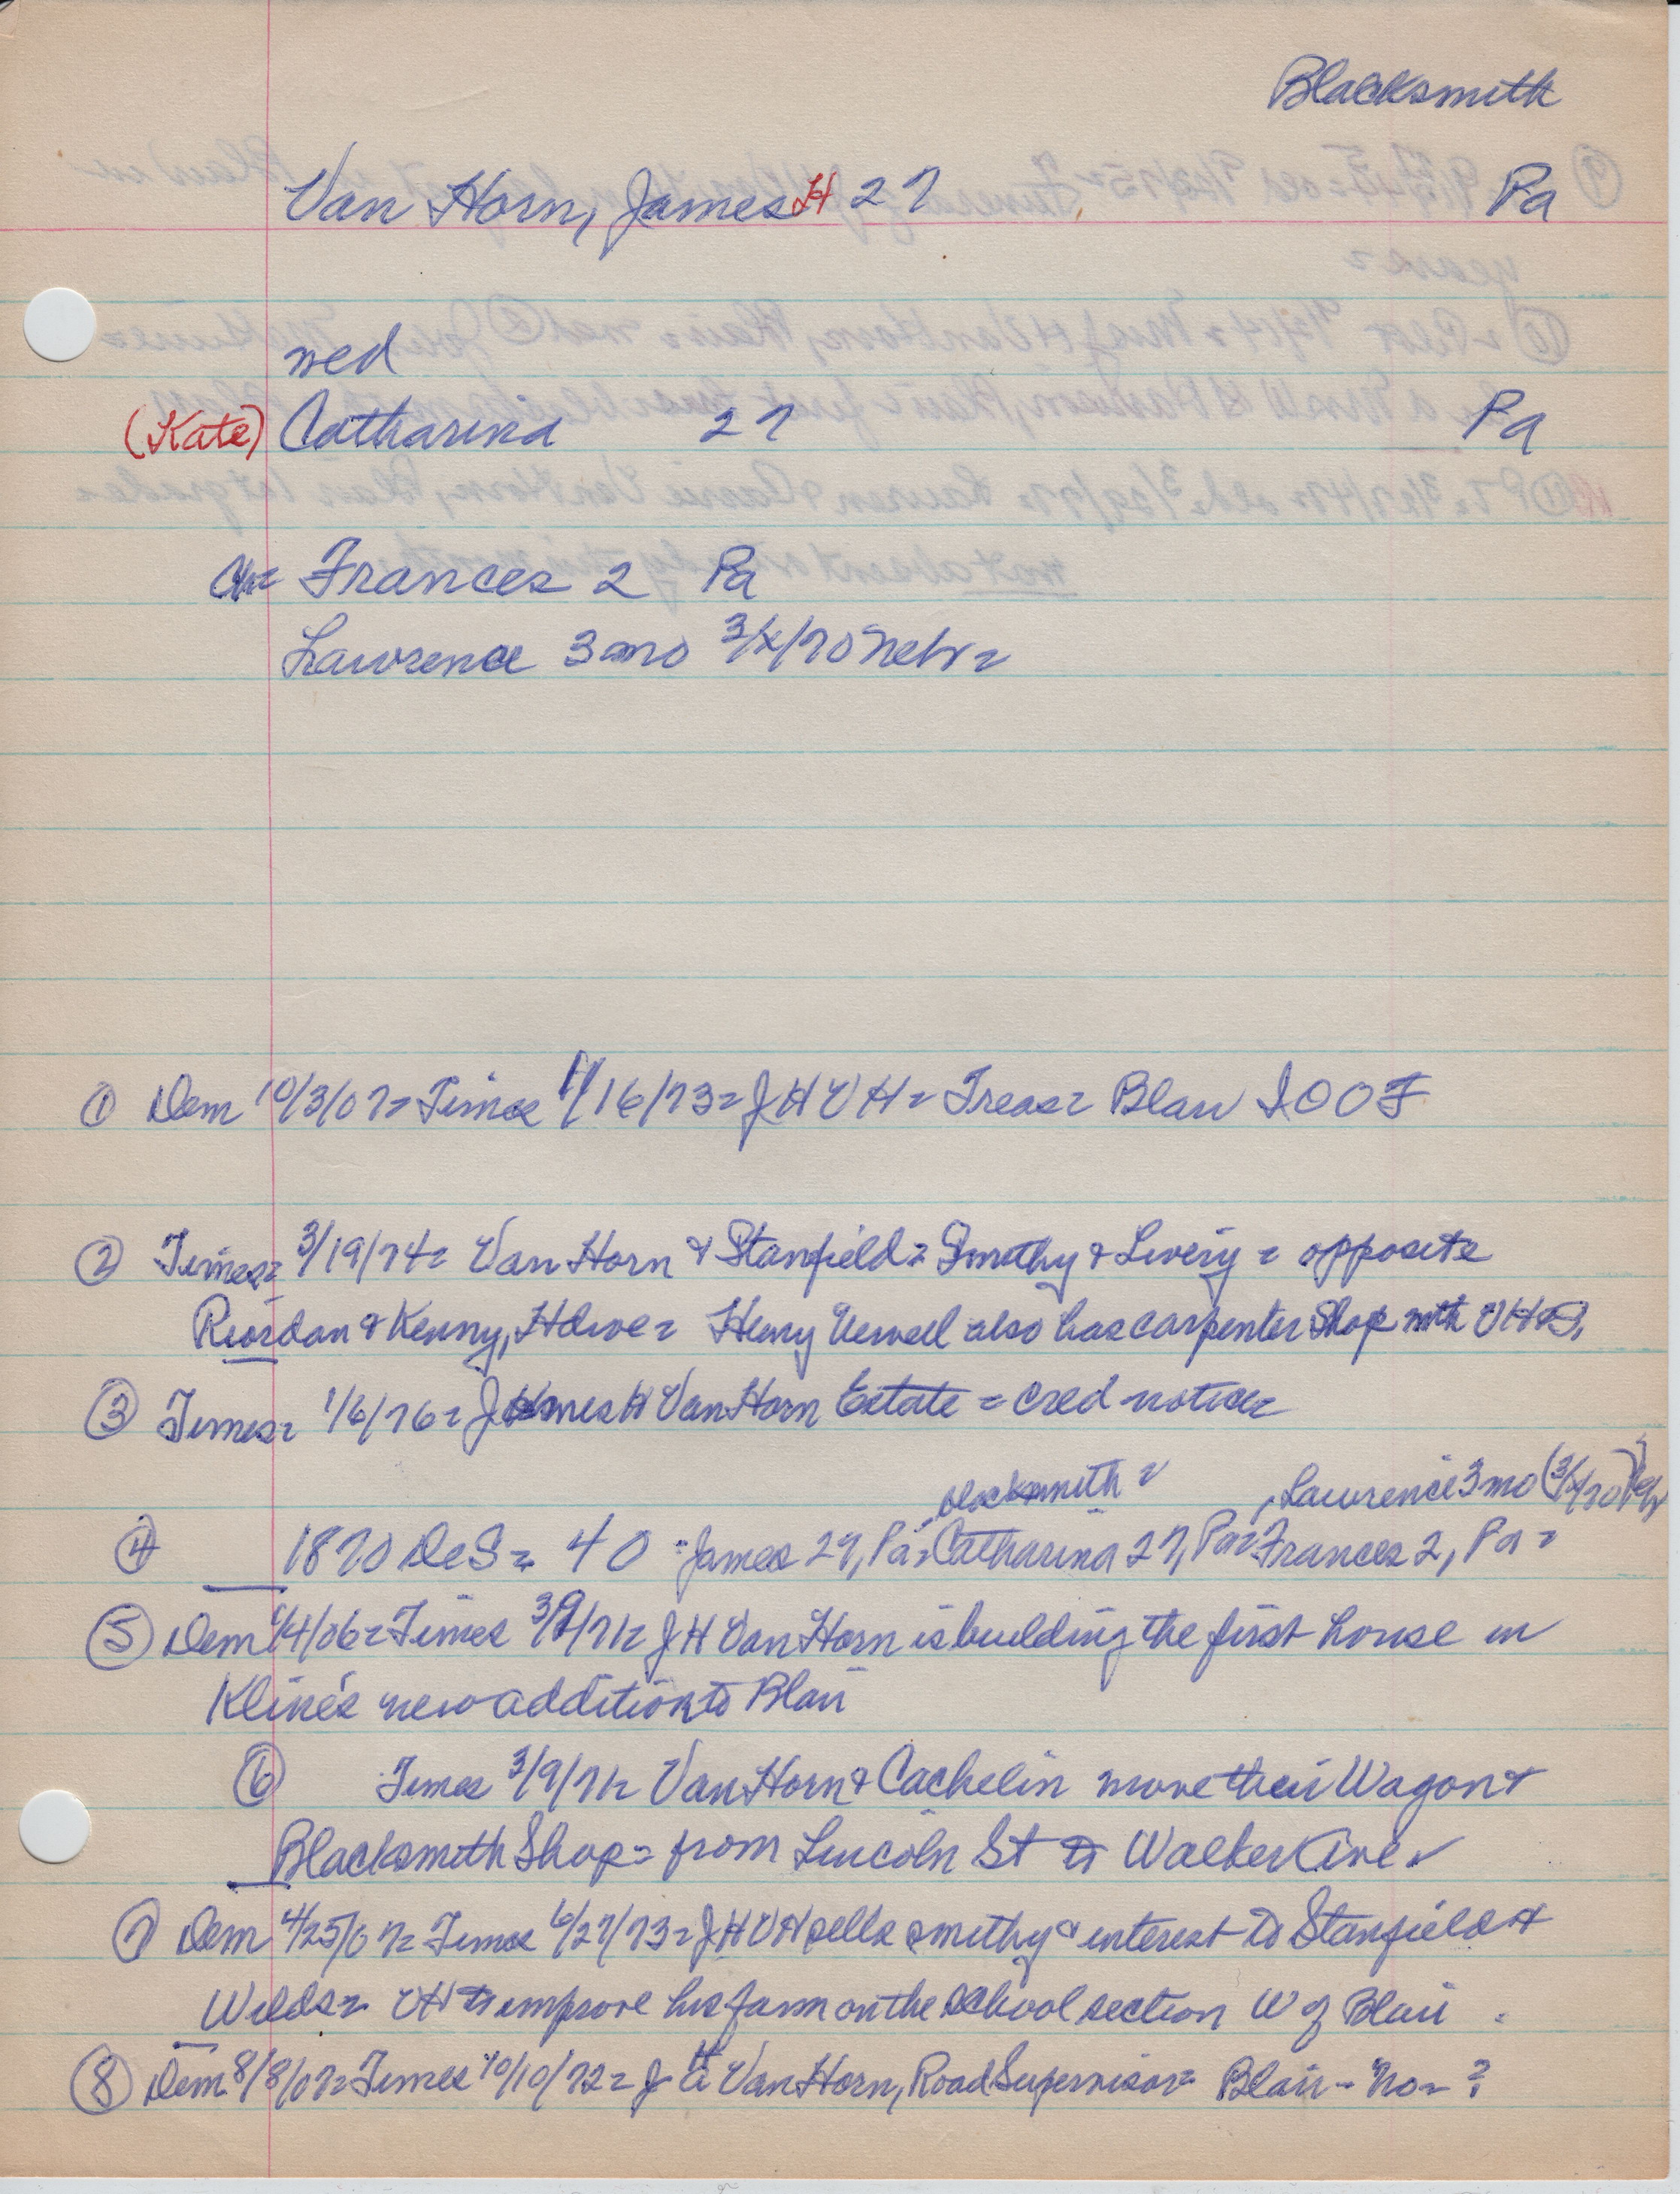 Blacksmith
Van Horn, James H 27 Pa
med
(Kate) Catharina 27 Pa
Ch= Frances 2 Pa
Lawrence 3 mo 3/x/70 Nebr=
① Dem 10/3/07= Times 1/16/73= J H V H= Treas= Blair IOOF
② Times= 3/19/74= Van Horn & Stanfield= Smithy & Livery= opposite
Riordan & Kenny, Hdwe= Henry Newell also has carpenter Shop with VH&S.
③ Times= 1/6/76= James H Van Horn Estate= cred notice=
blacksmith= , Lawrence 3 mo (3/x/70)
④ 1870 DeS= 40 James 27, Pa= Catharina 27, Pa= Frances 2, Pa=
⑤ Dem /4/06= Times 3/9/71= J H Van Horn is building the first house in
Kline's new addition to Blair
⑥ Times 3/9/71= Van Horn & Cachelin move their Wagon &
Blacksmith Shop= from Lincoln St to Walker Ave.
⑦ Dem 4/25/07= Times 6/27/73= J H V H sells smithy & interest to Stanfield &
Wilds= VH to improve his farm on the school section W of Blair.
⑧ Dem 8/8/07= Times 10/10/72= J H Van Horn, Road Supervisor= Blair- No= ?